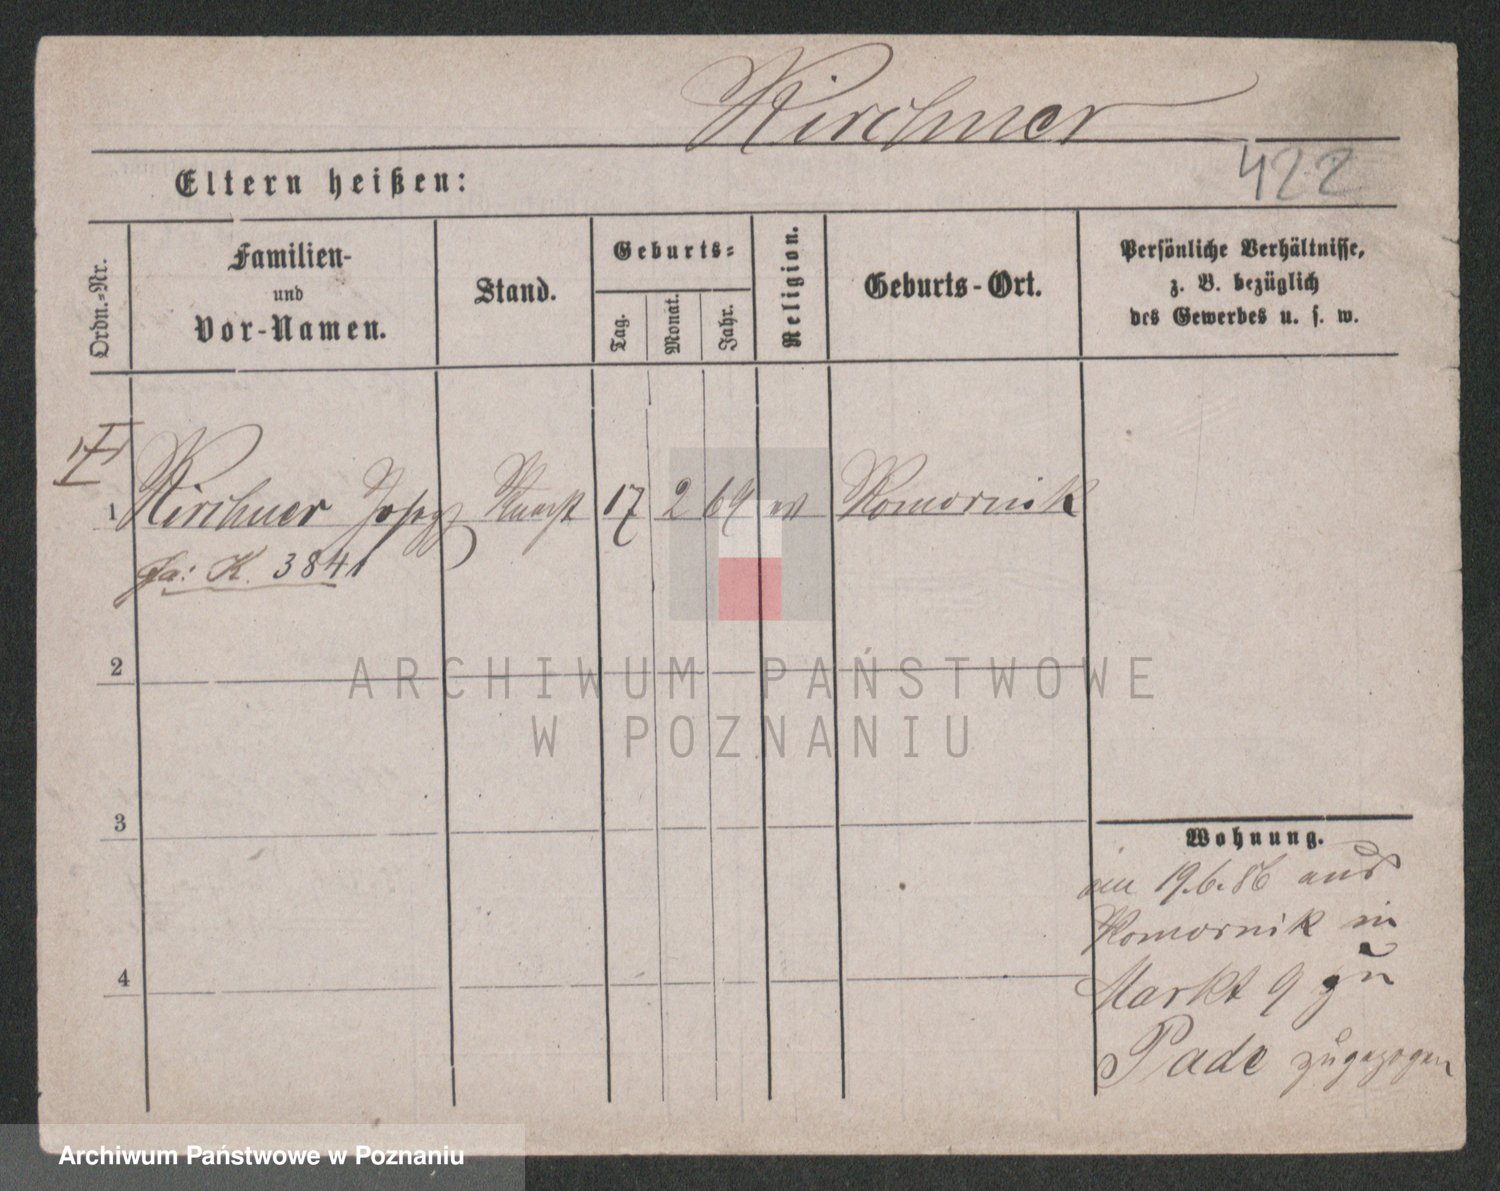 Kirchner
422
Eltern heißen:
Ordn.-Nr.
Familien-
und
Vor-Namen.
Stand.
Geburts-
Tag.
Monat.
Jahr.
Religion.
Geburts-Ort.
Persönliche Verhältnisse,
z. B. bezüglich
des Gewerbes u. s. w.
1 Kirchner Josef 17 2 69 Komornik
fa: K. 3841
2
3
4
Wohnung.
am 19.6.86 aus
Komornik in
Markt 9 zu
Pade zugezogen
ARCHIWUM PAŃSTWOWE
W POZNANIU
Archiwum Państwowe w Poznaniu